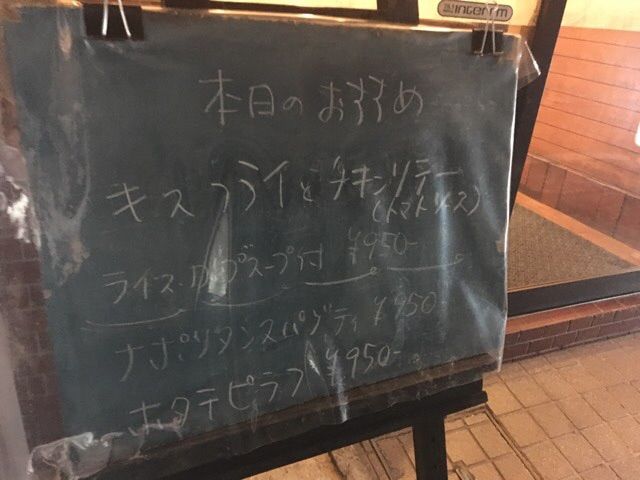 interim
本日のおすすめ
キスフライとチキンソテー
(トマトソース)
ライス・カップスープ付 ¥950-
ナポリタンスパゲティ ¥950-
ホタテピラフ ¥950-